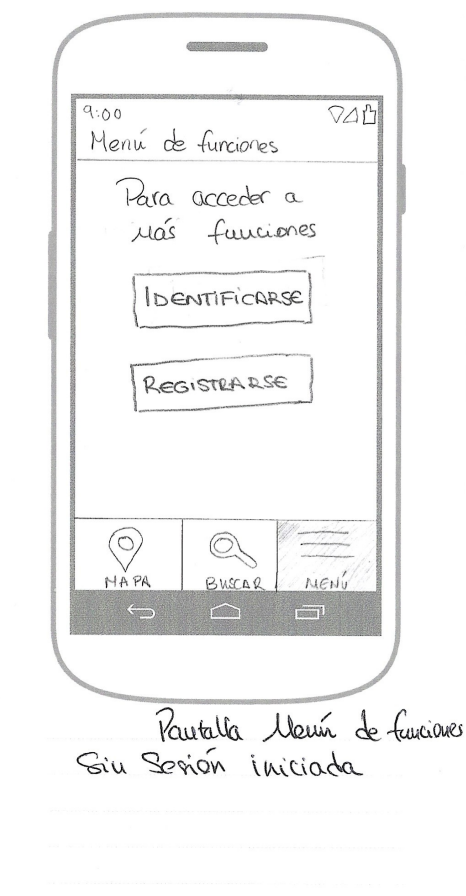 9:00
Menú de funciones
Para acceder a
más funciones
IDENTIFICARSE
REGISTRARSE
MAPA
BUSCAR
MENÚ
Pantalla Menú de funciones
Sin Sesión iniciada